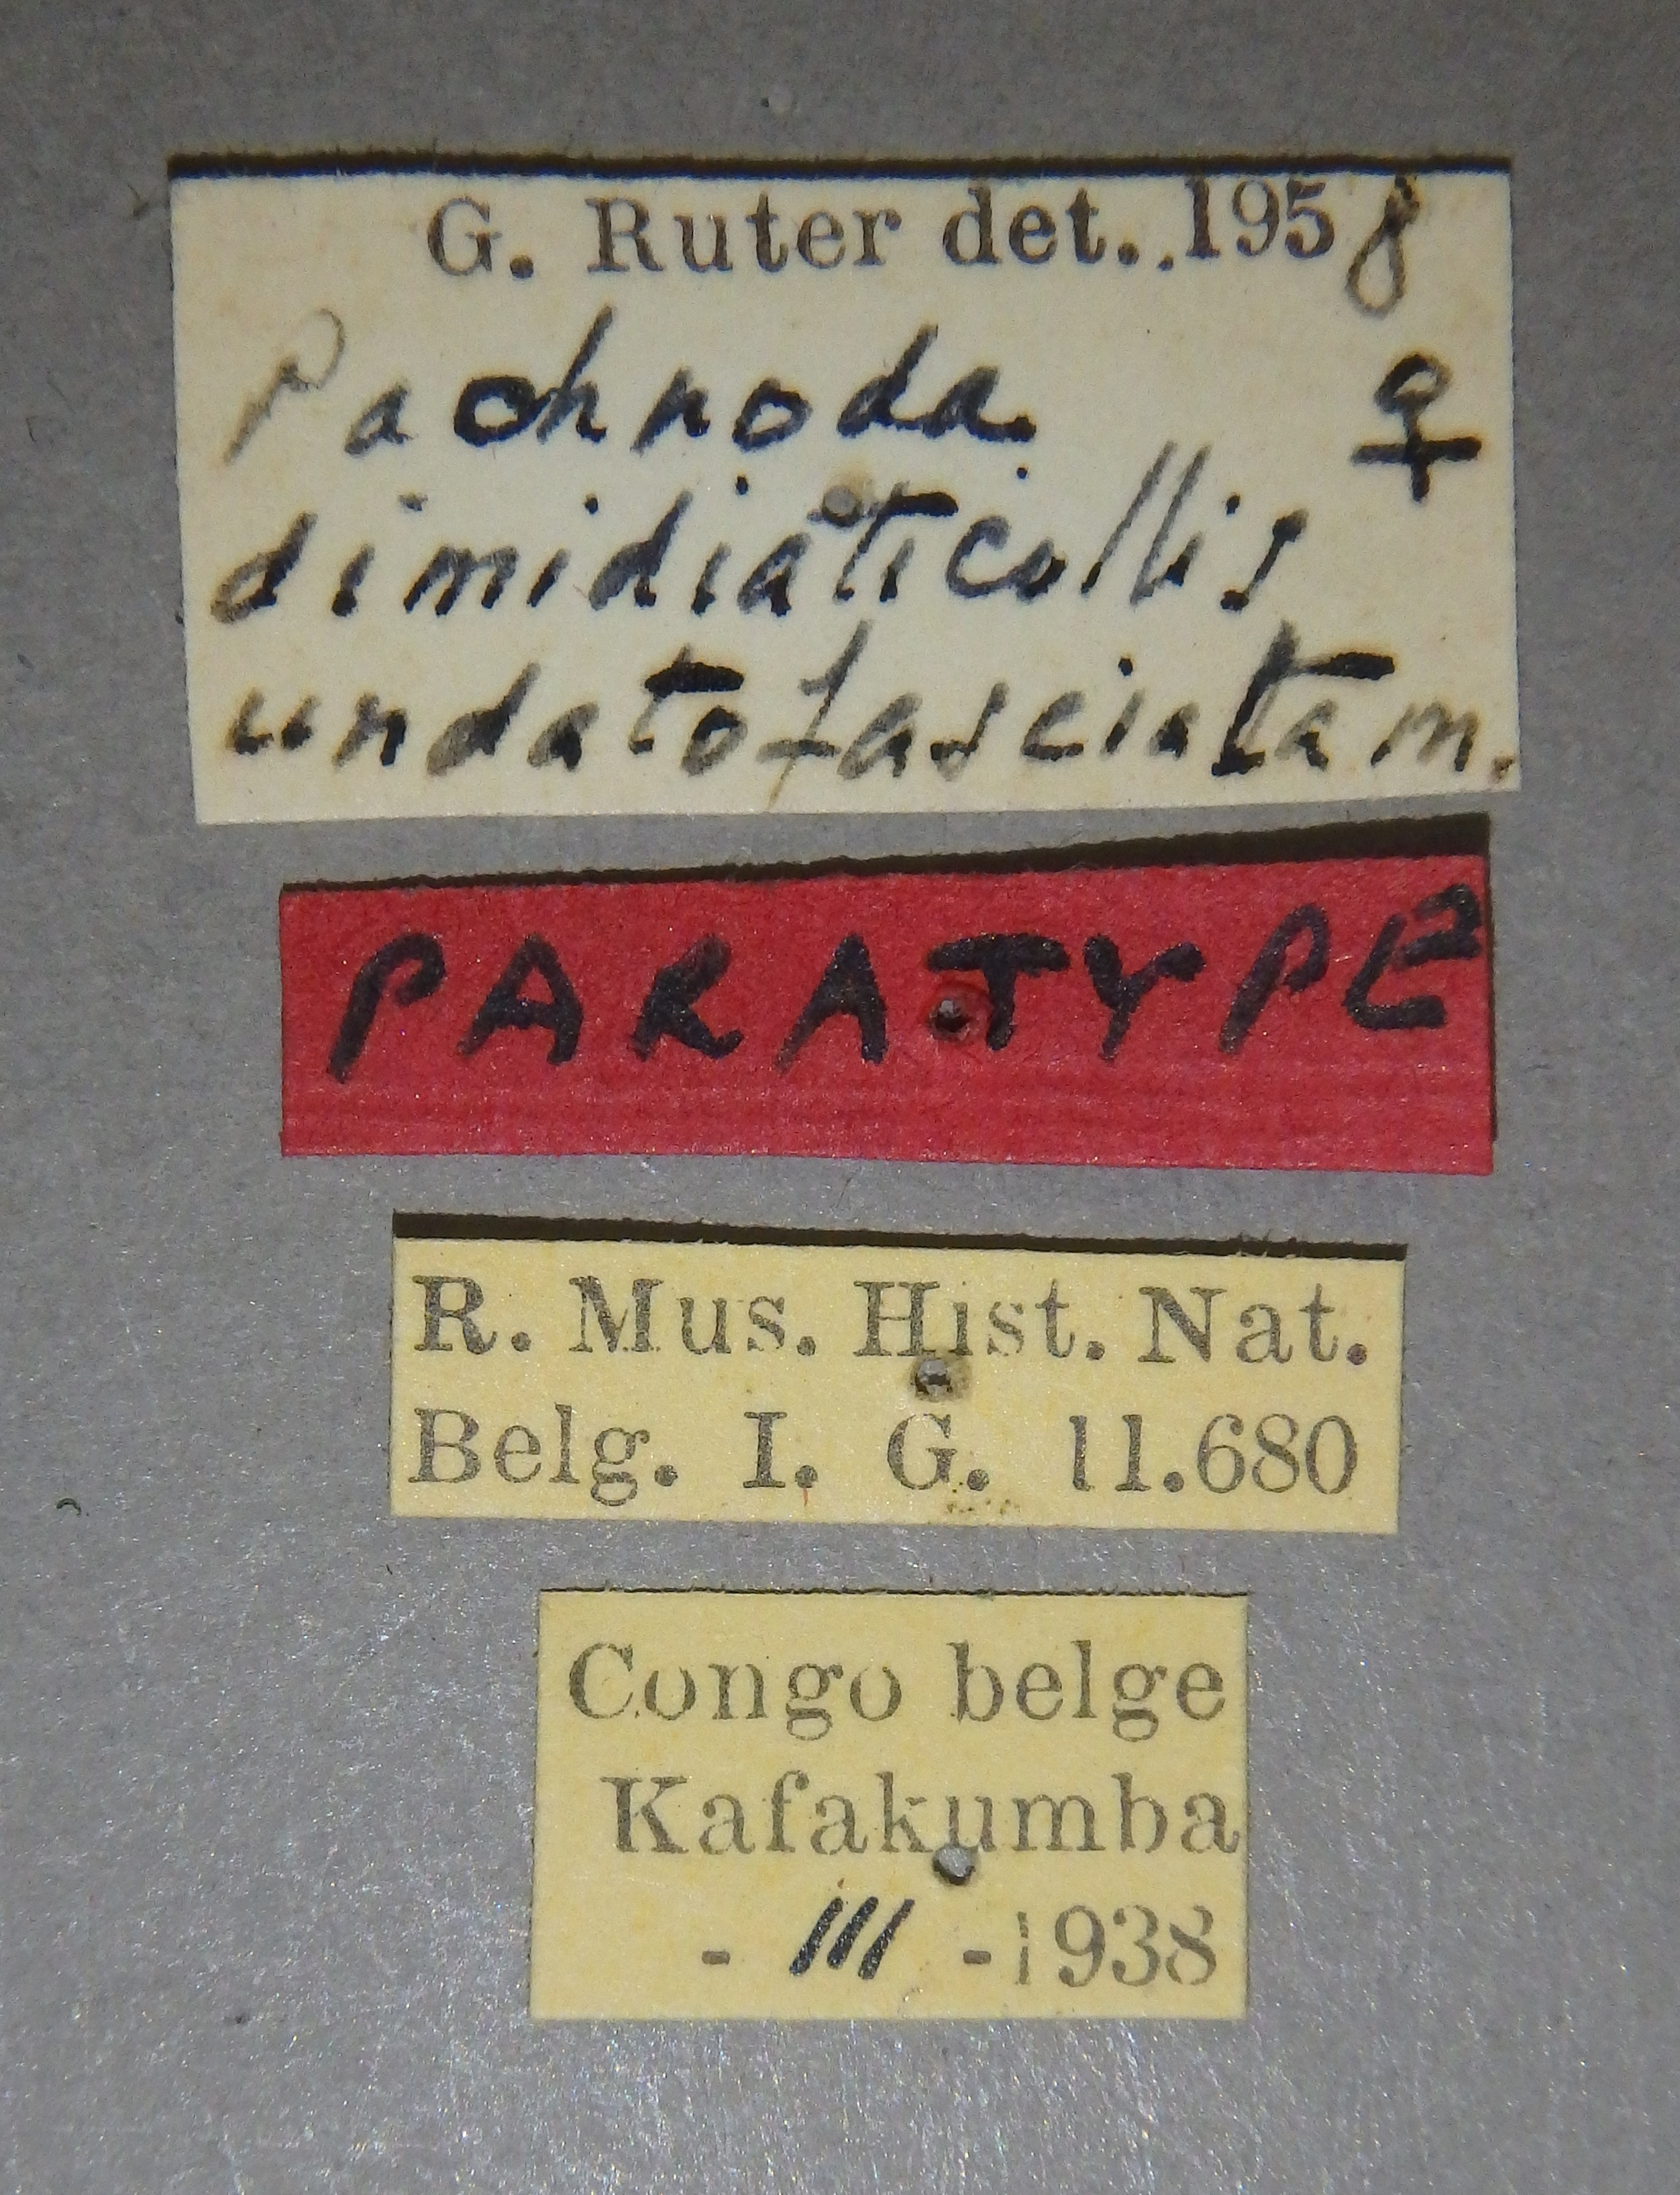 G. Ruter det. 1958
Pachnoda ♀
dimidiaticollis
undatofasciata m.
PARATYPE
R. Mus. Hist. Nat.
Belg. I. G. 11.680
Congo belge
Kafakumba
- III - 1938